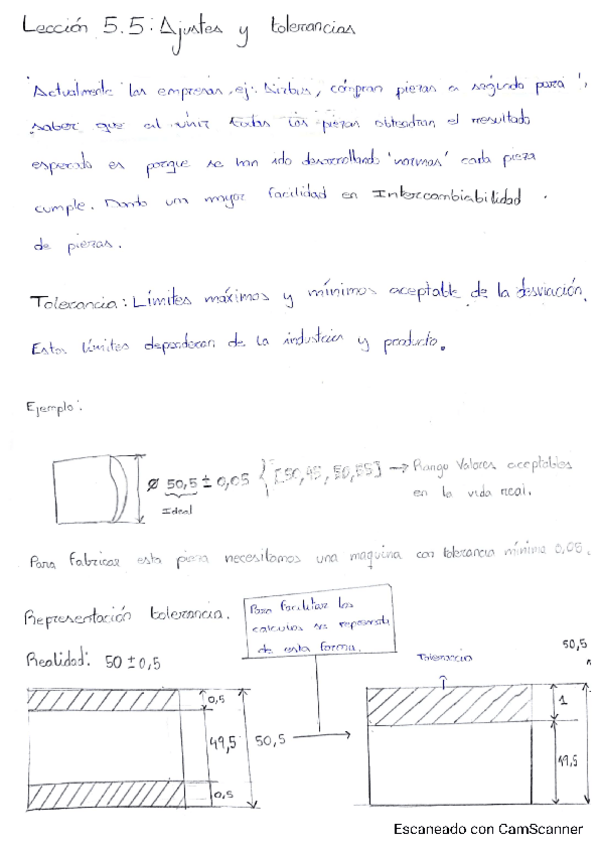 Lección 5.5: Ajustes y tolerancias
Actualmente las empresas, ej: Airbus, compran piezas a segundo para
saber que al unir todas las piezas obtendran el resultado
esperado es porque se han ido desarrollando 'normas' cada pieza
cumple. Dando una mayor facilidad en Intercambiabilidad
de piezas.
Tolerancia: Límites máximos y mínimos aceptable de la desviación.
Estos límites dependeran de la industria y producto.
Ejemplo:
Ø 50,5 ± 0,05 { [50,45, 50,55] → Rango Valores aceptables
en la vida real.
Ideal
Para fabricar esta pieza necesitamos una maquina con tolerancia mínima 0,05.
Representación tolerancia.
Para facilitar los
calculos se representa
de esta forma.
Realidad: 50 ± 0,5
Tolerancia
50,5
0,5
49,5
50,5
0,5
1
49,5
Escaneado con CamScanner